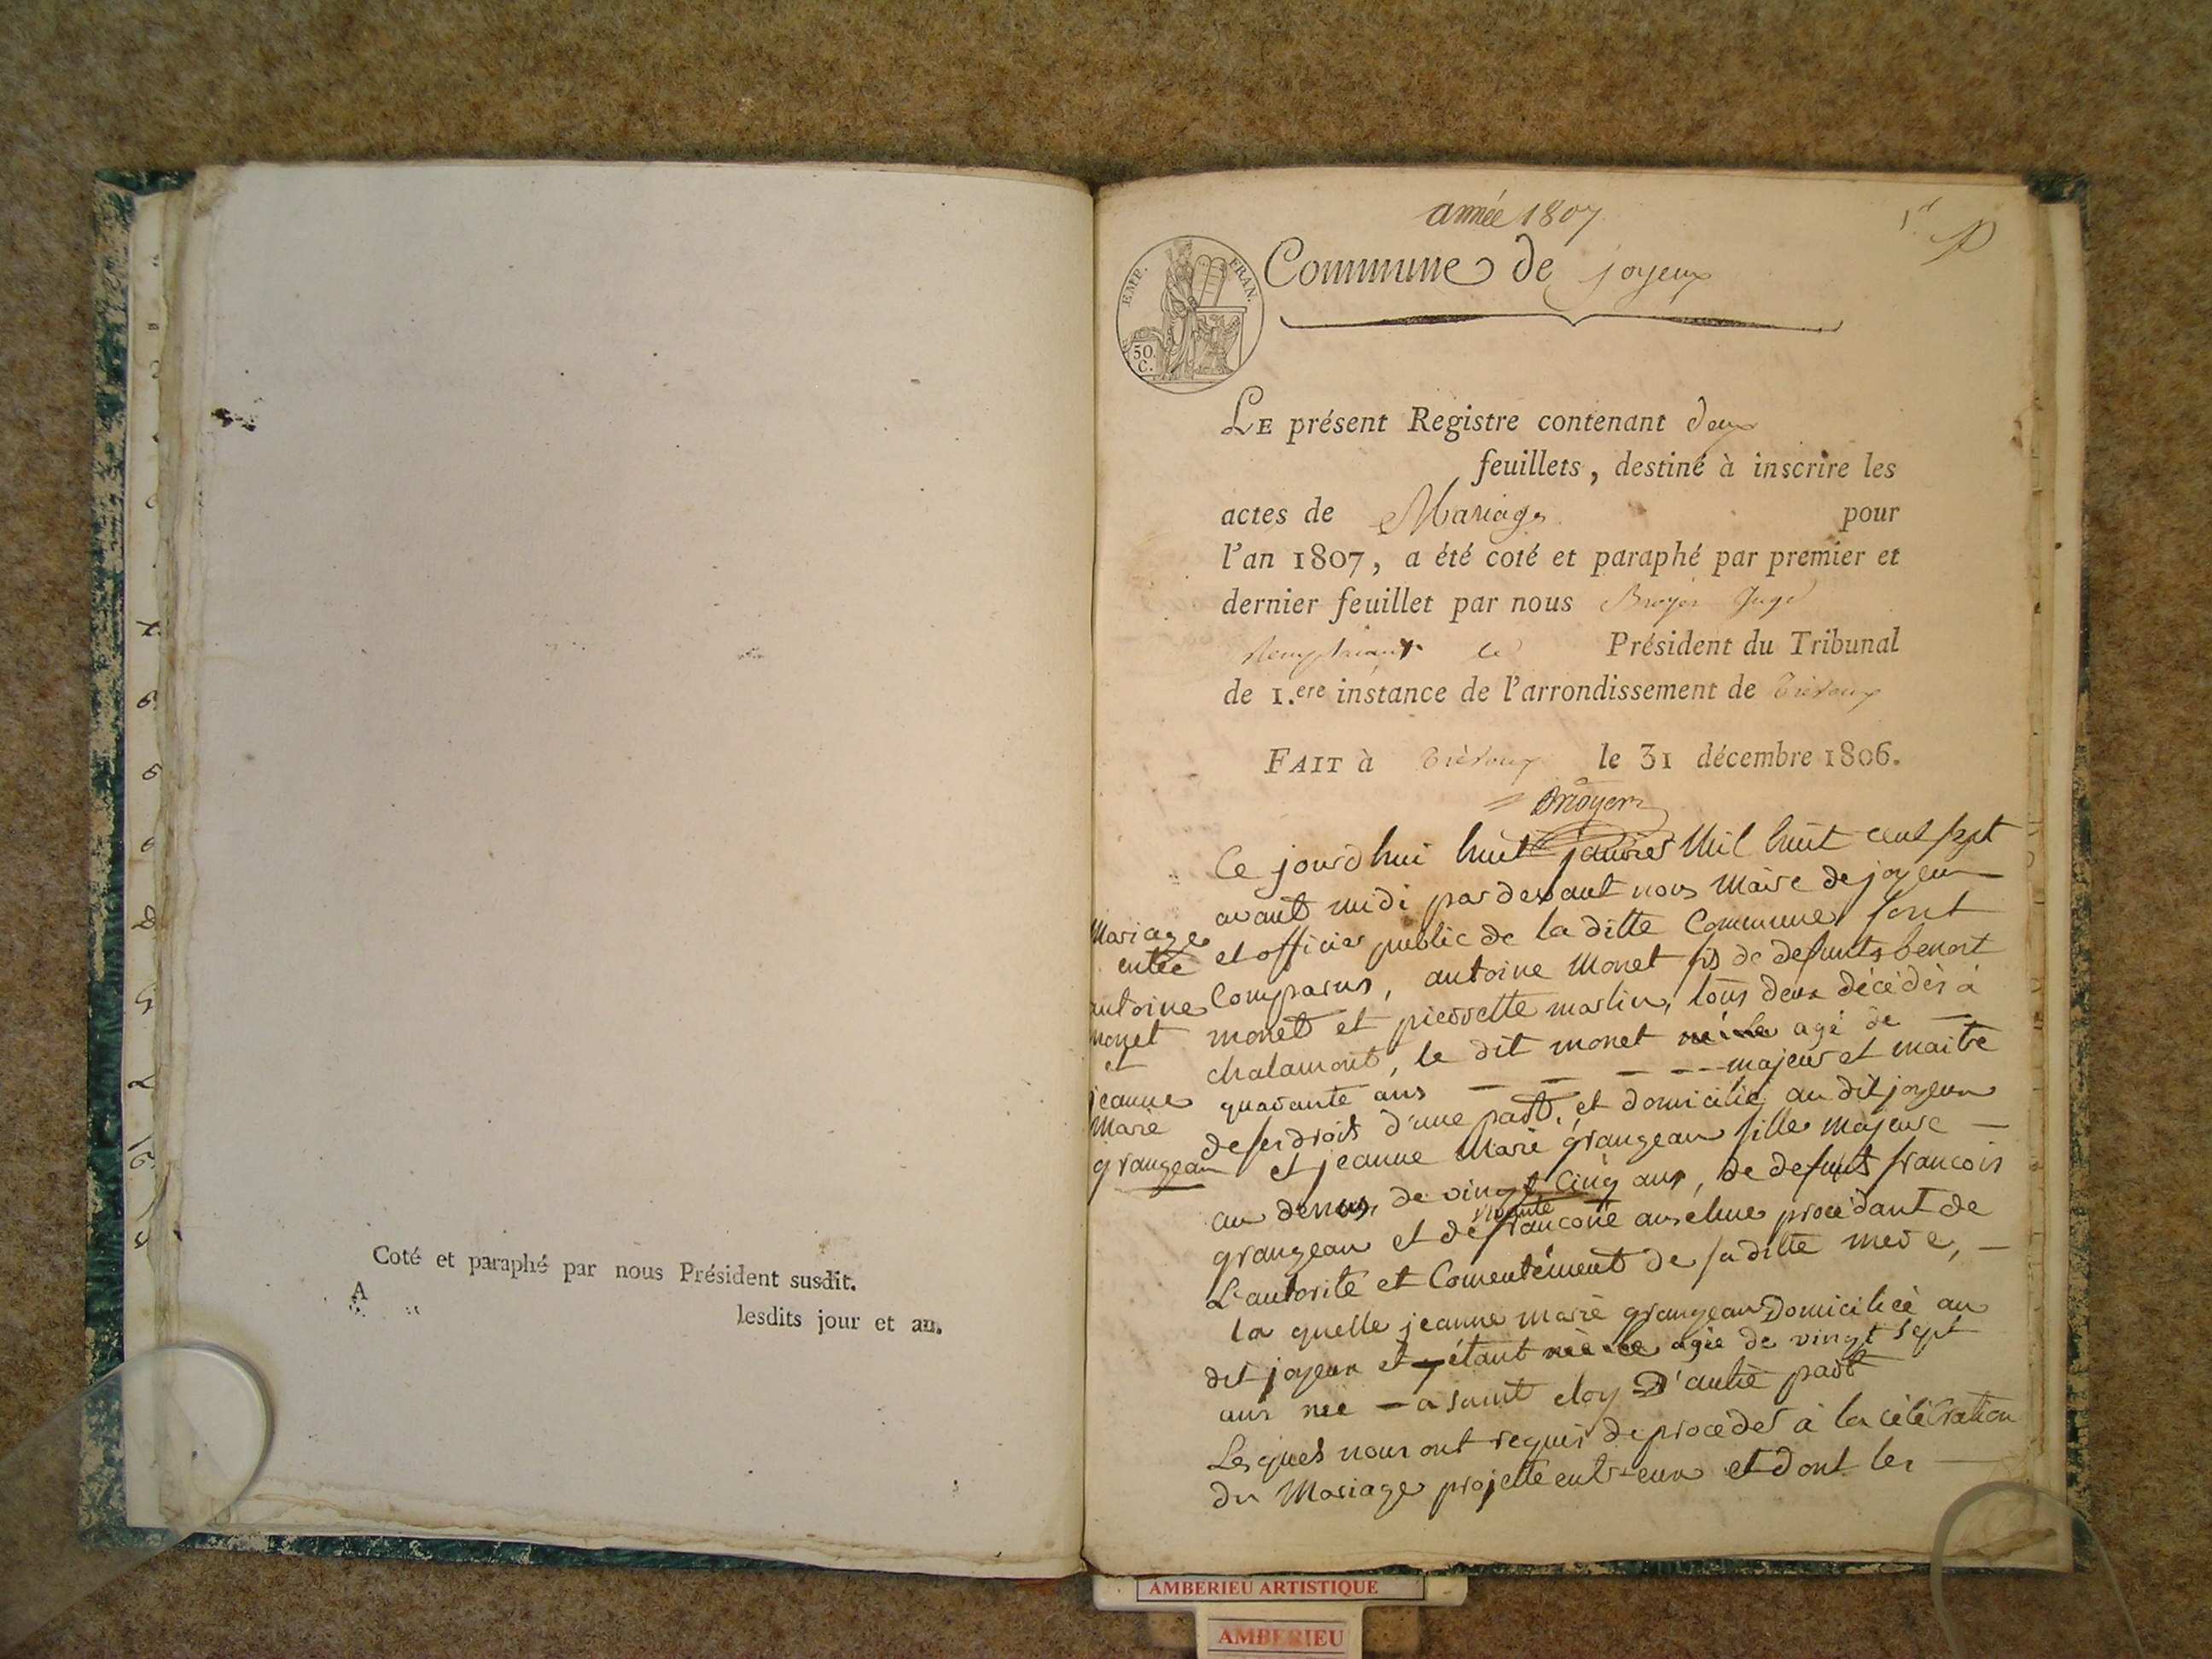 Coté et paraphé par nous Président susdit.
A
lesdits jour et an.
année 1807
1er
EMP. FRAN.
50.
C.
Commune de joyeux
LE présent Registre contenant deux
feuillets, destiné à inscrire les
actes de Mariage pour
l'an 1807, a été coté et paraphé par premier et
dernier feuillet par nous Broyer Juge
Remplaçant le Président du Tribunal
de 1.ere instance de l'arrondissement de Trévoux
FAIT à Trévoux le 31 décembre 1806.
Broyer
Mariage
entre
antoine
monet
et
jeanne
Marie
grangean
Ce jourd'hui huit janvier Mil huit cent sept
avant midi pardevant nous Maire de joyeux
et officier public de la ditte Commune sont
Comparus, antoine Monet fils de defunts benoit
monet et pierrette marlin, tous deux décédés à
chalamont, le dit monet agé de
quarante ans majeur et maitre
de ses droits d'une part, et domicilié au dit joyeux
et jeanne Marie grangean fille majeure
au dessus de vingt Cinq ans, de defunt francois
grangean et de vivante francoise anselme procédant de
L'autorité et Consentement de sa ditte mere,
la quelle jeanne marie grangean Domiciliée au
dit joyeux et étant agée de vingt sept
ans née a saint eloy D'autre part
Lesquels nous ont requis de proceder à la célébration
du Mariage projetté entr'eux et dont les
AMBERIEU ARTISTIQUE
AMBERIEU